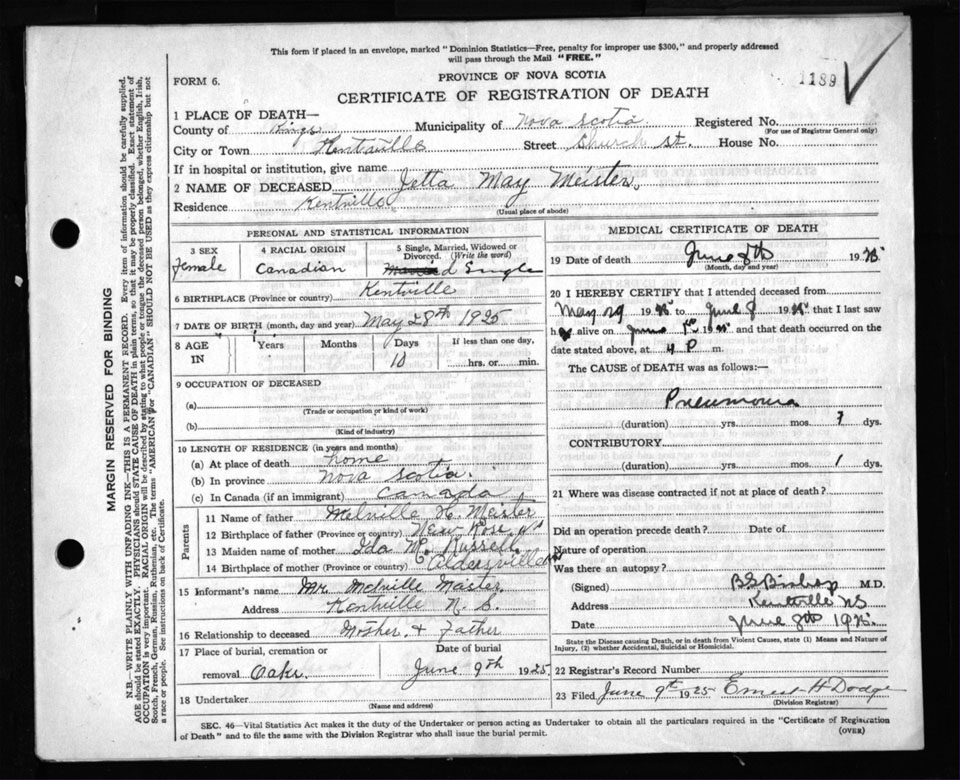 This form if placed in an envelope, marked "Dominion Statistics—Free, penalty for improper use $300," and properly addressed
will pass through the Mail "FREE."
FORM 6.
PROVINCE OF NOVA SCOTIA
1189
CERTIFICATE OF REGISTRATION OF DEATH
1 PLACE OF DEATH—
County of Kings Municipality of Nova Scotia Registered No.
(For use of Registrar General only)
City or Town Kentville Street Church St. House No.
If in hospital or institution, give name
2 NAME OF DECEASED Jetta May Meister
Residence Kentville
(Usual place of abode)
PERSONAL AND STATISTICAL INFORMATION
3 SEX 4 RACIAL ORIGIN 5 Single, Married, Widowed or
Divorced. (Write the word)
Female Canadian Single
6 BIRTHPLACE (Province or country) Kentville
7 DATE OF BIRTH (month, day and year) May 28th 1925
8 AGE IN Years Months Days If less than one day,
10 hrs. or min.
9 OCCUPATION OF DECEASED
(a)
(Trade or occupation or kind of work)
(b)
(Kind of industry)
10 LENGTH OF RESIDENCE (in years and months)
(a) At place of death home
(b) In province Nova Scotia.
(c) In Canada (if an immigrant) Canada
Parents
11 Name of father Melville H. Meister
12 Birthplace of father (Province or country) New Ross N S
13 Maiden name of mother Ida M. Russell
14 Birthplace of mother (Province or country) Aldersville
15 Informant's name Mr Melville Master
Address Kentville N. S.
16 Relationship to deceased Mother & Father
17 Place of burial, cremation or Date of burial
removal Oaks June 9th 1925
18 Undertaker
(Name and address)
MEDICAL CERTIFICATE OF DEATH
19 Date of death June 8th 1925
(Month, day and year)
20 I HEREBY CERTIFY that I attended deceased from
May 29 1925 to June 8 1925 that I last saw
h alive on June 1925 and that death occurred on the
date stated above, at 4 P m.
The CAUSE of DEATH was as follows:—
Pneumonia
(duration) yrs. mos. 7 dys.
CONTRIBUTORY
(duration) yrs. mos. 1 dys.
21 Where was disease contracted if not at place of death?
Did an operation precede death? Date of
Nature of operation
Was there an autopsy?
(Signed) B S Bishop M.D.
Address Kentville NS
Date June 8th 1925.
State the Disease causing Death, or in death from Violent Causes, state (1) Means and Nature of
Injury, (2) whether Accidental, Suicidal or Homicidal.
22 Registrar's Record Number
23 Filed June 9th 1925 Ernest H Dodge
(Division Registrar)
SEC. 46—Vital Statistics Act makes it the duty of the Undertaker or person acting as Undertaker to obtain all the particulars required in the "Certificate of Registration
of Death" and to file the same with the Division Registrar who shall issue the burial permit.
(OVER)
MARGIN RESERVED FOR BINDING
N.B.—WRITE PLAINLY WITH UNFADING INK—THIS IS A PERMANENT RECORD. Every item of information should be carefully supplied.
AGE should be stated EXACTLY. PHYSICIANS should STATE CAUSE OF DEATH in plain terms, so that it may be properly classified. Exact statement of
OCCUPATION is very important. RACIAL ORIGIN will be described by stating to what people or tongue the deceased person belonged, whether English, Irish,
Scotch, French, German, Russian, Ruthenian, etc. The terms "AMERICAN" or "CANADIAN" SHOULD NOT BE USED as they express citizenship but not
a race or people. See instructions on back of Certificate.